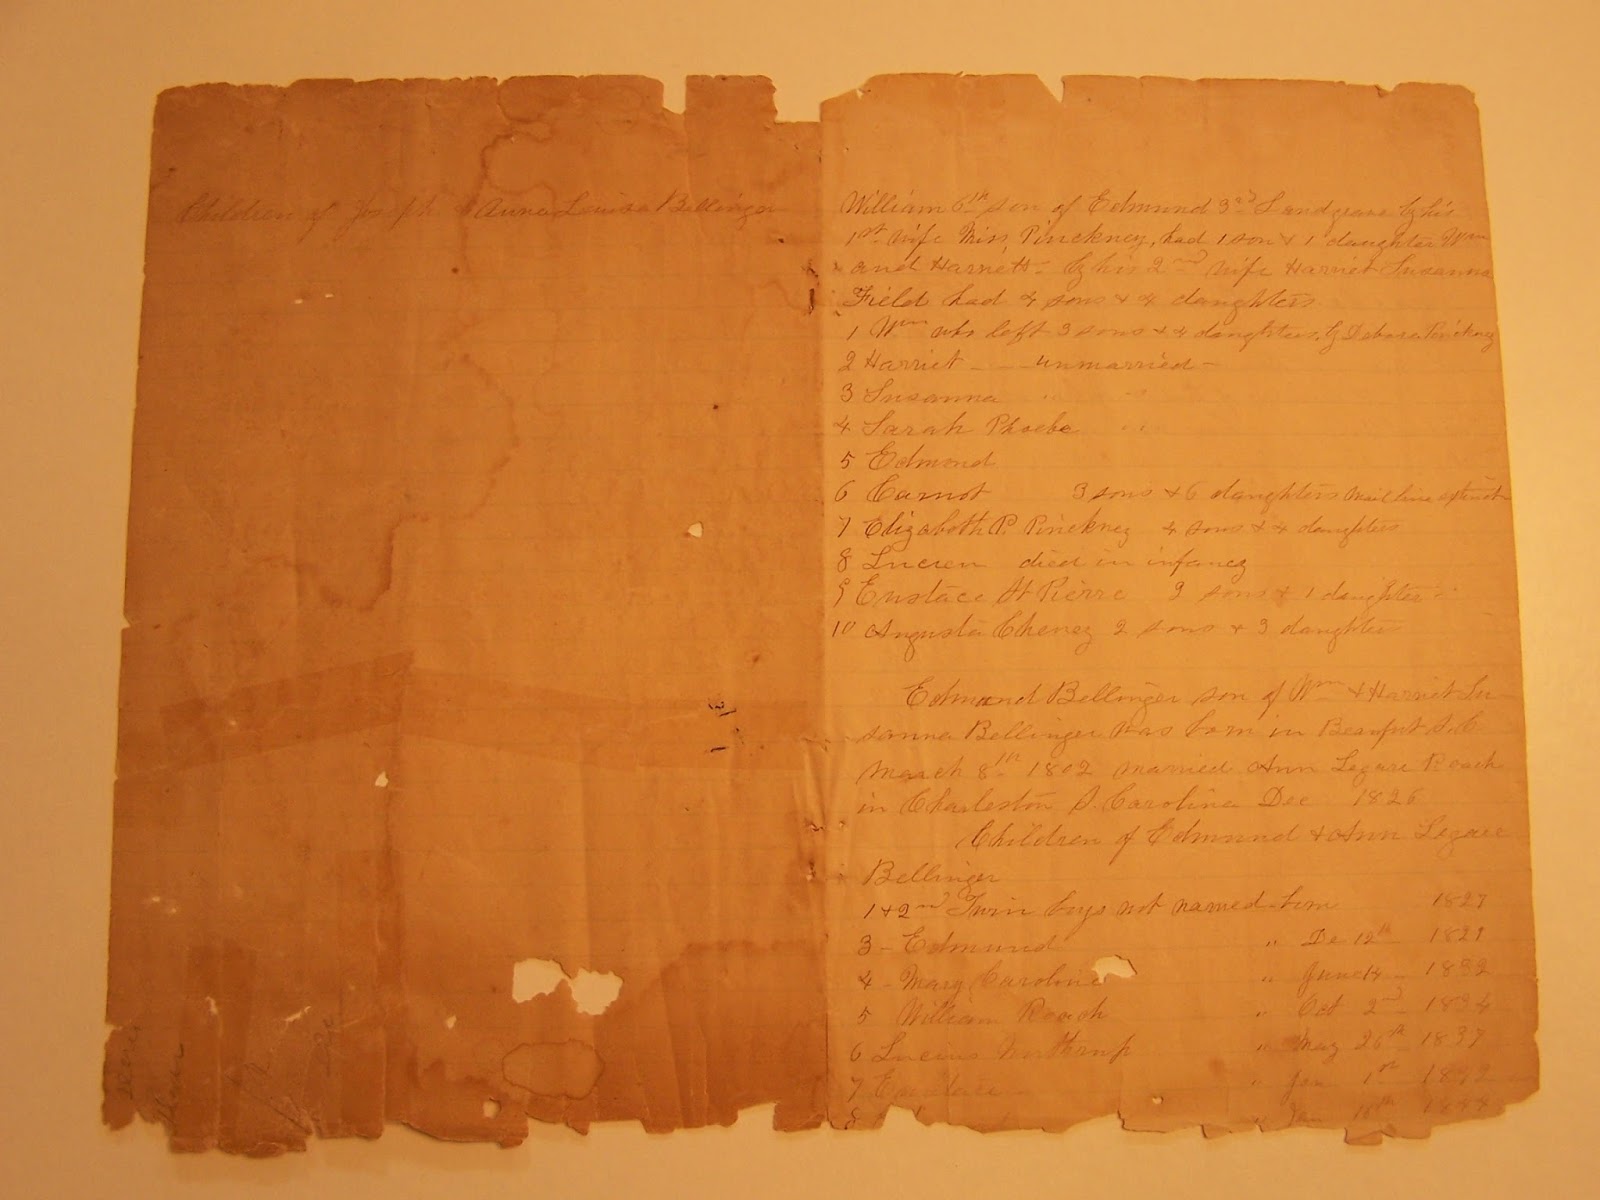 Children of Joseph & Anna Louisa Bellinger
William 6th son of Edmund 3rd Landgrave by his
1st wife Miss Pinckney, had 1 son & 1 daughter Wm
and Harriett - by his 2nd wife Harriet Susanna
Field had 4 sons & 4 daughters
1 Wm who left 3 sons & 4 daughters. by Pinckney
2 Harriet - - - unmarried -
3 Susanna " "
4 Sarah Phoebe "
5 Edmund
6 Carnot 3 sons & 6 daughters line extinct
7 Elizabeth P. Pinckney 4 sons & 4 daughters
8 Lucien died in infancy
9 Eustace St Pierre sons & 1 daughter
10 Augusta Cheney 2 sons & 3 daughters
Edmund Bellinger son of Wm & Harriet Su-
sanna Bellinger was born in Beaufort S. C.
March 8th 1802 married Ann Legare Roach
in Charleston S. Carolina Dec 1826
Children of Edmund & Ann Legare
Bellinger
1 & 2nd Twin boys not named born 1827
3 - Edmund " De 12th 1829
4 - Mary Caroline " June 14 - 1832
5 William Roach " Oct 2nd 1834
6 Lucius Northrup " May 26th 1837
7 Eustace - " Jan 1st 1842
8 " Jan 16th